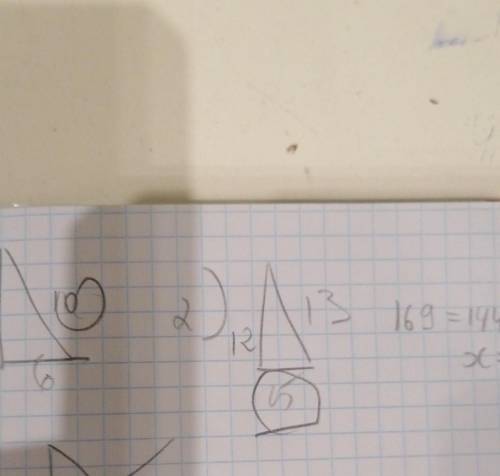 10
6
2) 12 13 169 = 144
5
x =